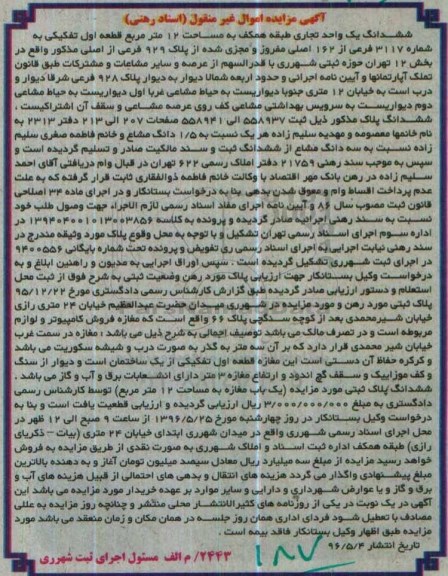 آگهی مزایده اموال غیر منقول (اسناد رهنی)
ششدانگ یک واحد تجاری طبقه همکف به مساحت ۱۲ متر مربع قطعه اول تفکیکی به
شماره ۳۱۱۷ فرعی از ۱۶۲ اصلی مفروز و مجزی شده از پلاک ۹۲۹ فرعی از اصلی مذکور واقع در
بخش ۱۲ تهران حوزه ثبتی شهرری با قدرالسهم از عرصه و سایر مشاعات و مشترکات طبق قانون
تملک آپارتمانها و آیین نامه اجرائی و حدود اربعه شمالا دیوار به دیوار پلاک ۹۲۸ فرعی شرقا دیوار و
درب است به خیابان ۱۲ متری جنوبا دیواریست به حیاط مشاعی غربا اول دیواریست به حیاط مشاعی
دوم دیواریست به سرویس بهداشتی مشاعی کف روی عرصه مشاعی و سقف آن اشتراکیست ،
ششدانگ پلاک مذکور ذیل ثبت ۵۵۸۹۳۷ الی ۵۵۸۹۴۱ صفحات ۲۰۷ الی ۲۱۳ دفتر ۲۳۱۳ به
نام خانمها معصومه و مهدیه سلیم زاده هر یک نسبت به ۱/۵ دانگ مشاع و خانم فاطمه صغری سلیم
زاده نسبت به سه دانگ مشاع از ششدانگ ثبت و سند مالکیت صادر و تسلیم گردیده است و
سپس به موجب سند رهنی ۲۱۷۵۹ دفتر املاک رسمی ۶۲۲ تهران در قبال وام دریافتی آقای احمد
سلیم زاده در رهن بانک مهر اقتصاد با وکالت خانم فاطمه ذوالفقاری ثابت قرار گرفته که به علت
عدم پرداخت اقساط وام و معوق شدن بدهی بنا به درخواست بستانکار و در اجرای ماده ۳۴ اصلاحی
قانون ثبت مصوب سال ۸۶ و آیین نامه اجرای مفاد اسناد رسمی لازم الاجراء جهت وصول طلب خود
نسبت به سند رهنی اجرائیه صادر گردیده و پرونده به کلاسه ۱۳۹۴۰۴۰۰۱۰۱۳۰۰۳۸۵۶ در
اداره سوم اجرای اسناد رسمی تهران تشکیل و با توجه به محل وقوع پلاک مورد وثیقه مندرج در
سند رهنی نیابت اجرایی به اجرای اسناد رسمی ری تفویض و پرونده تحت شماره بایگانی ۹۴۰۰۵۵۶
در اجرای ثبت شهرری تشکیل گردیده است . سپس اوراق اجرایی به مدیون و راهنین ابلاغ و به
درخواست وکیل بستانکار جهت ارزیابی پلاک مورد رهن وضعیت ثبتی به شرح فوق از ثبت محل
استعلام و دستور ارزیابی صادر گردیده طبق گزارش کارشناس رسمی دادگستری مورخ ۹۵/۱۲/۲۲
پلاک ثبتی مورد رهن و مورد مزایده در شهرری میدان حضرت عبدالعظیم خیابان ۲۴ متری رازی
خیابان شیرمحمدی بعد از کوچه سنگچی پلاک ۶۶ واقع است که مغازه فروش کامپیوتر و لوازم
مربوطه است و در تصرف مالک می باشد توصیف اجمالی به شرح ذیل می باشد : مغازه در سمت غرب
خیابان شیر محمدی قرار دارد که بر آن سه متر به گذر به صورت درب و شیشه سکوریت می باشد
و کرکره حفاظ آن دستی است این مغازه قطعه اول تفکیکی از یک ساختمان است و دیوار از سنگ
و کف موزاییک و سقف گچ اندود و ارتفاع مغازه ۳ متر دارای انشعابات برق و آب و گاز می باشد .
ششدانگ پلاک ثبتی مورد مزایده (یک باب مغازه به مساحت ۱۲ متر مربع) توسط کارشناس رسمی
دادگستری به مبلغ ۳/۰۰۰/۰۰۰/۰۰۰ ریال ارزیابی گردیده و ارزیابی قطعیت یافت است و بنا به
درخواست وکیل بستانکار در روز چهارشنبه مورخ ۱۳۹۶/۵/۲۵ از ساعت ۹ صبح الی ۱۲ ظهر در
محل اجرای اسناد رسمی شهرری واقع در میدان شهرری ابتدای خیابان ۲۴ متری (بیات – ذکریای
رازی) طبقه همکف اداره ثبت اسناد و املاک شهرری به صورت نقدی از طریق مزایده به فروش
خواهد رسید مزایده از مبلغ سه میلیارد ریال معادل سیصد میلیون تومان آغاز و به دهنده بالاترین
مبلغ پیشنهادی واگذار می گردد هزینه های انتقال و بدهی های احتمالی از قبیل هزینه های آب و
برق و گاز و یا عوارض شهرداری و دارایی و سایر موارد بر عهده خریدار مورد مزایده می باشد این
آگهی در یک نوبت در یکی از روزنامه های کثیرالانتشار محلی منتشر و چنانچه روز مزایده به عللی
مصادف با تعطیل شود فردای اداری همان روز جلسه در همان مکان و زمان منعقد می باشد مورد
مزایده طبق اظهار وکیل بستانکار فاقد بیمه است .
تاریخ انتشار ۹۶/۵/۴
۲۴۴۳/ م الف مسئول اجرای ثبت شهرری
۱۸۷